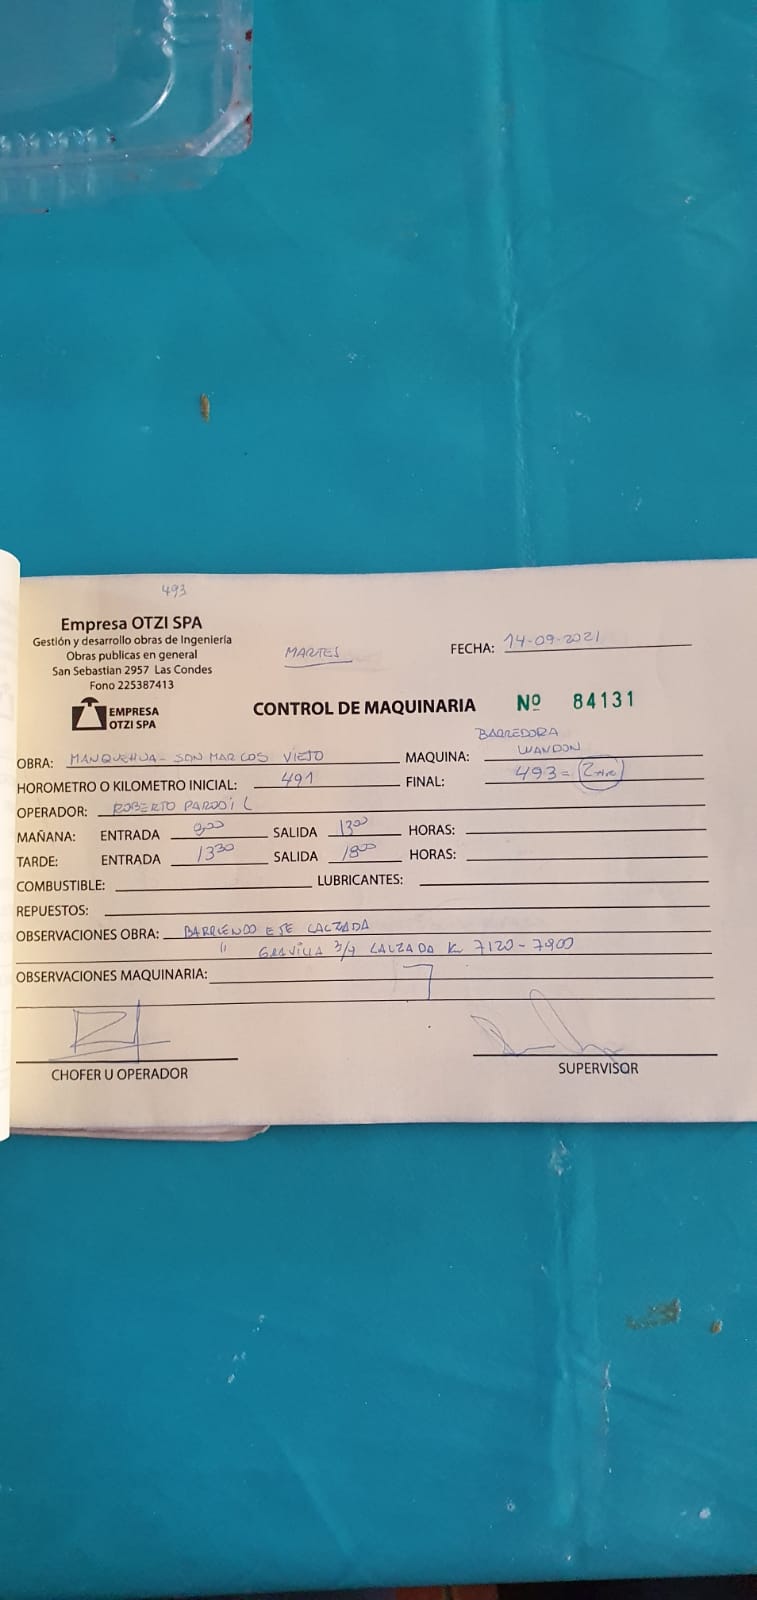 493
Empresa OTZI SPA
Gestión y desarrollo obras de Ingeniería
Obras publicas en general
San Sebastian 2957 Las Condes
Fono 225387413
EMPRESA
OTZI SPA
MARTES
FECHA: 14-09-2021
CONTROL DE MAQUINARIA Nº 84131
OBRA: MANQUEHUA - SAN MARCOS VIEJO MAQUINA: BARREDORA
WANDON
HOROMETRO O KILOMETRO INICIAL: 491 FINAL: 493 = 2
OPERADOR: ROBERTO PARDO
MAÑANA: ENTRADA 8:00 SALIDA 13:00 HORAS:
TARDE: ENTRADA 13:30 SALIDA 18:00 HORAS:
COMBUSTIBLE: LUBRICANTES:
REPUESTOS:
OBSERVACIONES OBRA: BARRIENDO EJE CALZADA
" GRAVILLA 3/4 CALZADA K 7120 - 7900
OBSERVACIONES MAQUINARIA:
CHOFER U OPERADOR
SUPERVISOR